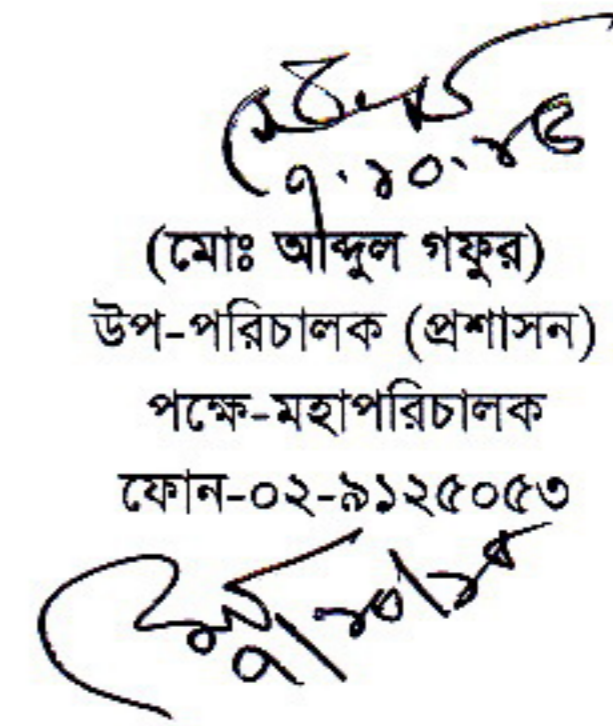 ৭.১০.১৫
(মোঃ আব্দুল গফুর)
উপ-পরিচালক (প্রশাসন)
পক্ষে-মহাপরিচালক
ফোন-০২-৯১২৫০৫৩
৭/১০/১৫